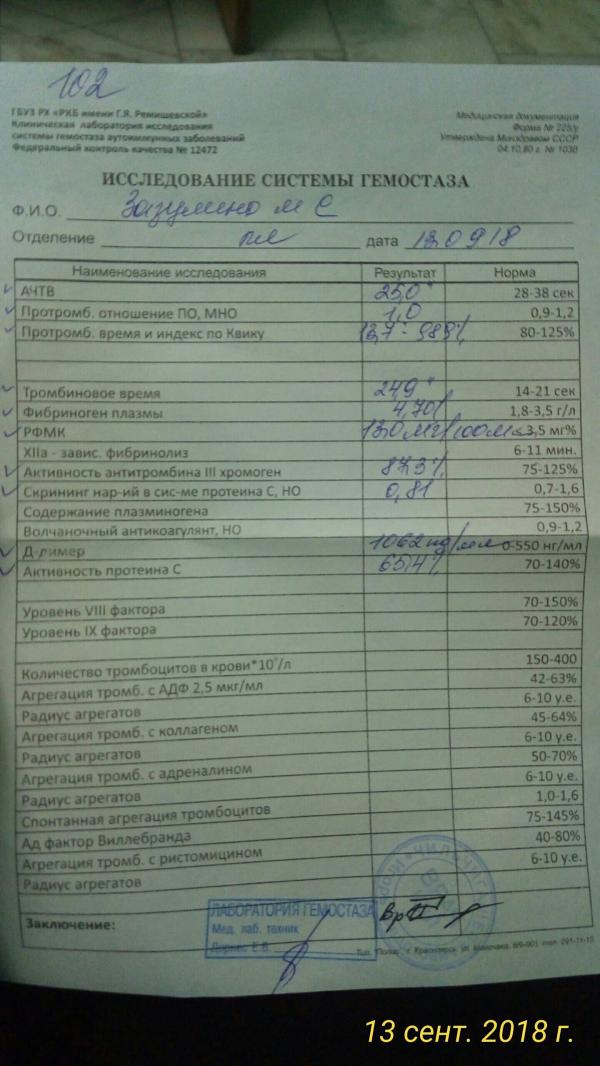 102
ГБУЗ РХ «РКБ имени Г.Я. Ремишевской»
Клиническая лаборатория исследования
системы гемостаза аутоиммунных заболеваний
Федеральный контроль качества № 12472
Медицинская документация
Форма № 225/у
Утверждена Минздравом СССР
04.10.80 г. № 1030
ИССЛЕДОВАНИЕ СИСТЕМЫ ГЕМОСТАЗА
Ф.И.О. М С
Отделение дата 13.09.18
Наименование исследования Результат Норма
АЧТВ 25,0" 28-38 сек
Протромб. отношение ПО, МНО 1,0 0,9-1,2
Протромб. время и индекс по Квику 13,7 - 98,9% 80-125%
Тромбиновое время 24,9" 14-21 сек
Фибриноген плазмы 4,70 1,8-3,5 г/л
РФМК 13,0 мг/100мл ≤3,5 мг%
XIIа - завис. фибринолиз 6-11 мин.
Активность антитромбина III хромоген 87,3% 75-125%
Скрининг нар-ий в сис-ме протеина С, НО 0,81 0,7-1,6
Содержание плазминогена 75-150%
Волчаночный антикоагулянт, НО 0,9-1,2
Д-димер 1062 нг/мл 0-550 нг/мл
Активность протеина С 65,4% 70-140%
Уровень VIII фактора 70-150%
Уровень IX фактора 70-120%
Количество тромбоцитов в крови*10⁹/л 150-400
Агрегация тромб. с АДФ 2,5 мкг/мл 42-63%
Радиус агрегатов 6-10 у.е.
Агрегация тромб. с коллагеном 45-64%
Радиус агрегатов 6-10 у.е.
Агрегация тромб. с адреналином 50-70%
Радиус агрегатов 6-10 у.е.
Спонтанная агрегация тромбоцитов 1,0-1,6
Ад фактор Виллебранда 75-145%
Агрегация тромб. с ристомицином 40-80%
Радиус агрегатов 6-10 у.е.
Заключение:
ЛАБОРАТОРИЯ ГЕМОСТАЗА
Мед. лаб. техник
Вр
г. Красноярск
13 сент. 2018 г.